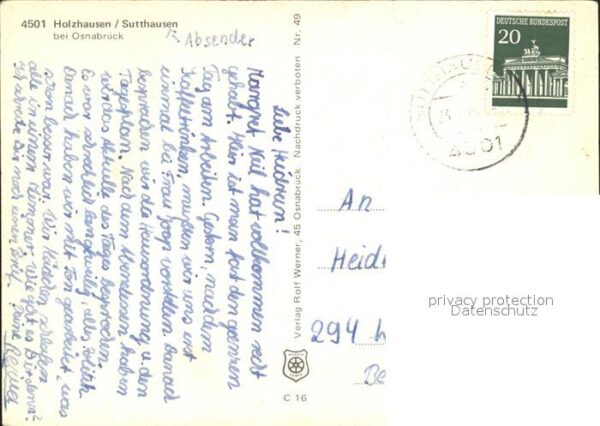 4501 Holzhausen / Sutthausen
bei Osnabrück
Absender
Liebe Heidrun!
Margret Keil hat vollkommen recht
gehabt. Hier ist man fast den ganzen
Tag am Arbeiten. Gestern, nach dem
Kaffeetrinken, mußten wir uns erst
einmal bei Frau Joop vorstellen. Danach
besprachen wir die Hausordnung u. den
Tagesplan. Nach dem Abendessen haben
wir das Aktuelle des Tages besprochen.
Es war schrecklich langweilig, alles Politik
Danach haben wir mit Ton gearbeitet, was
schon besser war. Wir Mädchen schlafen
alle in einem Zimmer. Wie geht es Dir denn?
Ich schreibe Dir noch einen Brief. Deine
Verlag Rolf Werner, 45 Osnabrück Nachdruck verboten Nr. 49
C 16
DEUTSCHE BUNDESPOST
20
4501
An
Heid
294
privacy protection
Datenschutz